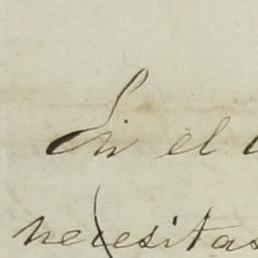 Sin el
necesitas